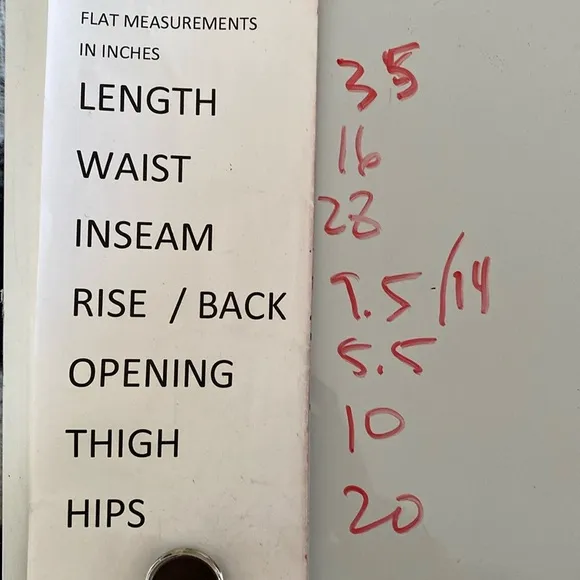 FLAT MEASUREMENTS
IN INCHES
LENGTH 35
WAIST 16
INSEAM 28
RISE / BACK 9.5/14
OPENING 5.5
THIGH 10
HIPS 20